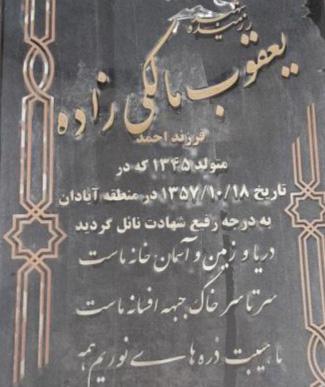 رزمنده
یعقوب مالکی زاده
فرزند احمد
متولد ۱۳۴۵ که در
تاریخ ۱۳۵۷/۱۰/۱۸ در منطقه آبادان
به درجه رفیع شهادت نائل گردید
دریا و زمین و آسمان خانه ماست
سرتاسر خاک جبهه افسانه ماست
ما هیبت ذره های نوریم همه